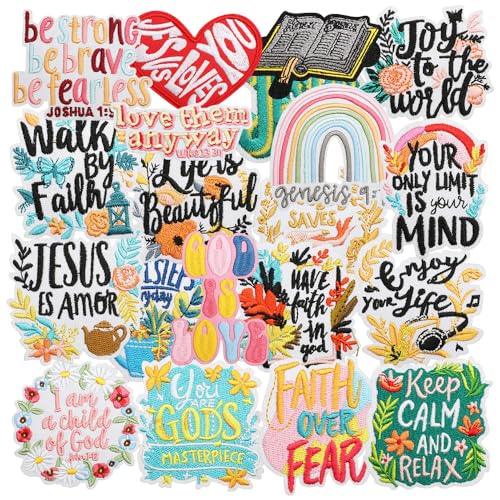 be strong
be brave
be fearless
JOSHUA 1:
JESUS LOVES
YOU
Joy
to the
world
love them
anyway
Walk
By
Faith
Life is
Beautiful
genesis 9:
SAVES
YOUR
ONLY LIMIT
IS your
MIND
JESUS
IS AMOR
GOD
IS
LOVE
HAVE
faith
in
god
Enjoy
your Life
I am
a child
of God
John 1:12
You
ARE
GOD'S
MASTERPIECE
FAITH
OVER
FEAR
Keep
CALM
AND
RELAX